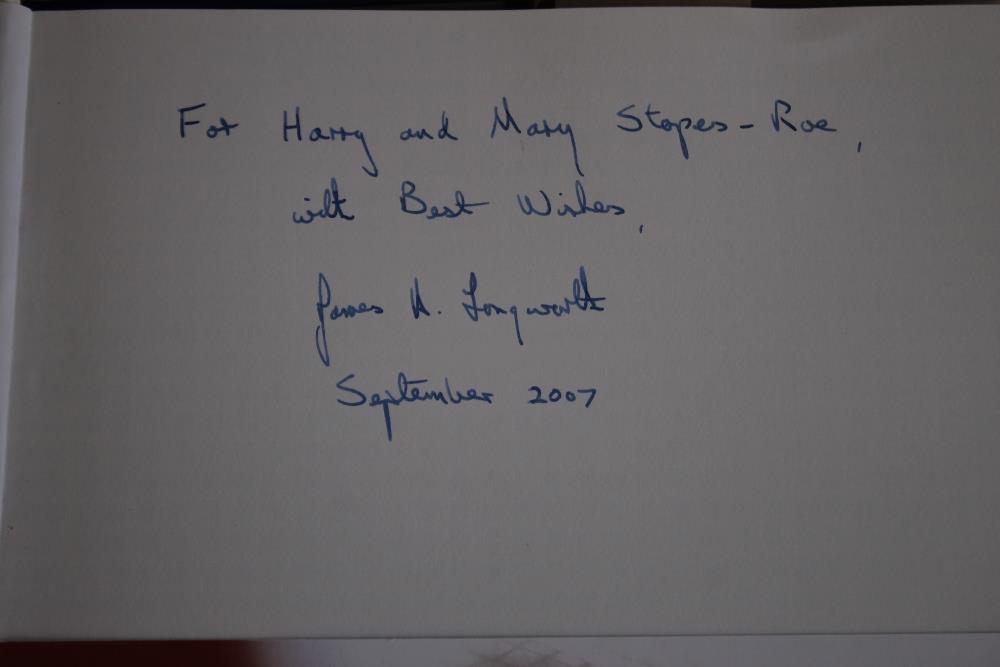 For Harry and Mary Stopes-Roe,
with Best Wishes,
James H. Longworth
September 2007